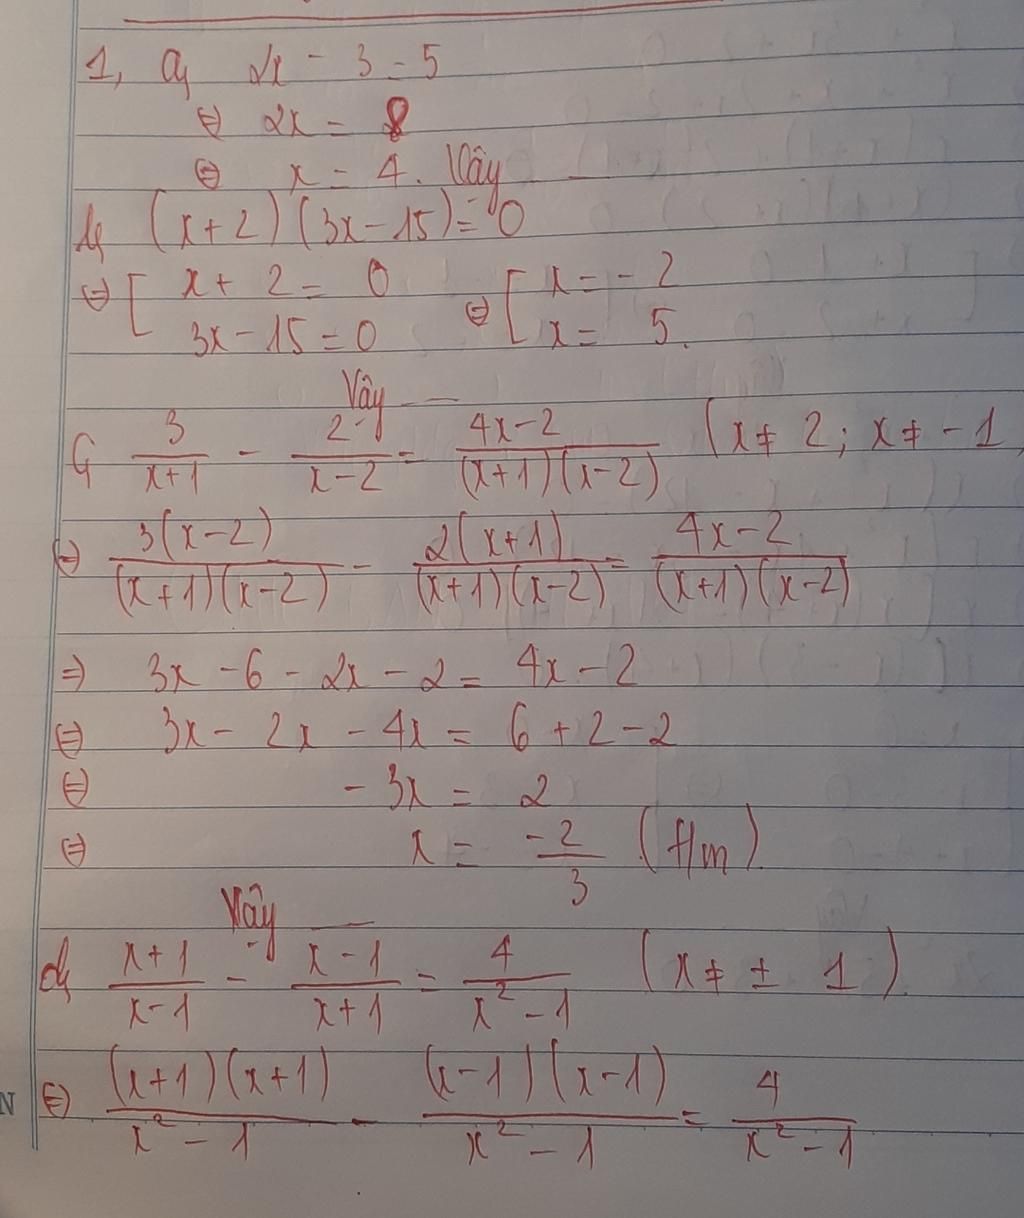 1, a, 2x - 3 = 5
⇔ 2x = 8
⇔ x = 4. Vậy —
b, (x+2)(3x-15) = 0
⇔ [ x + 2 = 0 ⇔ [ x = -2
3x - 15 = 0 x = 5.
Vậy —
c, 3/(x+1) - 2/(x-2) = (4x-2)/((x+1)(x-2)) (x ≠ 2; x ≠ -1
⇔ 3(x-2)/((x+1)(x-2)) - 2(x+1)/((x+1)(x-2)) = (4x-2)/((x+1)(x-2))
⇒ 3x - 6 - 2x - 2 = 4x - 2
⇔ 3x - 2x - 4x = 6 + 2 - 2
⇔ -3x = 2
⇔ x = -2/3 (t/m)
Vậy —
d, (x+1)/(x-1) - (x-1)/(x+1) = 4/(x²-1) (x ≠ ± 1)
N ⇔ (x+1)(x+1)/(x²-1) - (x-1)(x-1)/(x²-1) = 4/(x²-1)